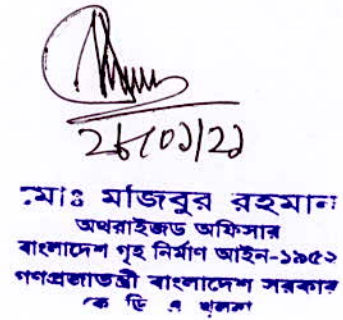 ২৮/০১/২১
মোঃ মজিবুর রহমান
অথরাইজড অফিসার
বাংলাদেশ গৃহ নির্মাণ আইন-১৯৫২
গণপ্রজাতন্ত্রী বাংলাদেশ সরকার
কে ডি এ খুলনা